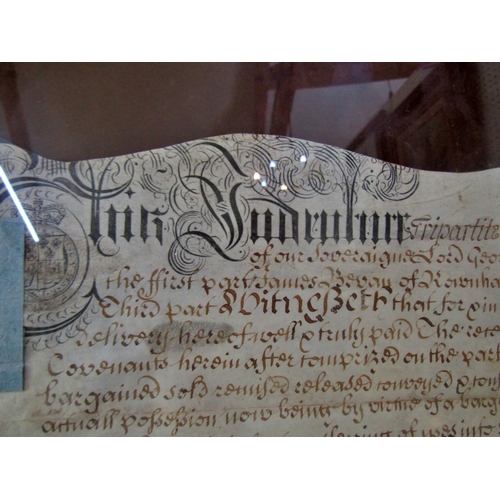 This Indenture Tripartite
of our Soveraigne Lord Geo
the first part James Bevan of
Third part Witnesseth that for
delivery hereof well & truly paid The
Covenants herein after comprized on the par
bargained sold remised released conveyed &
actuall possession now being by virtue of a barg